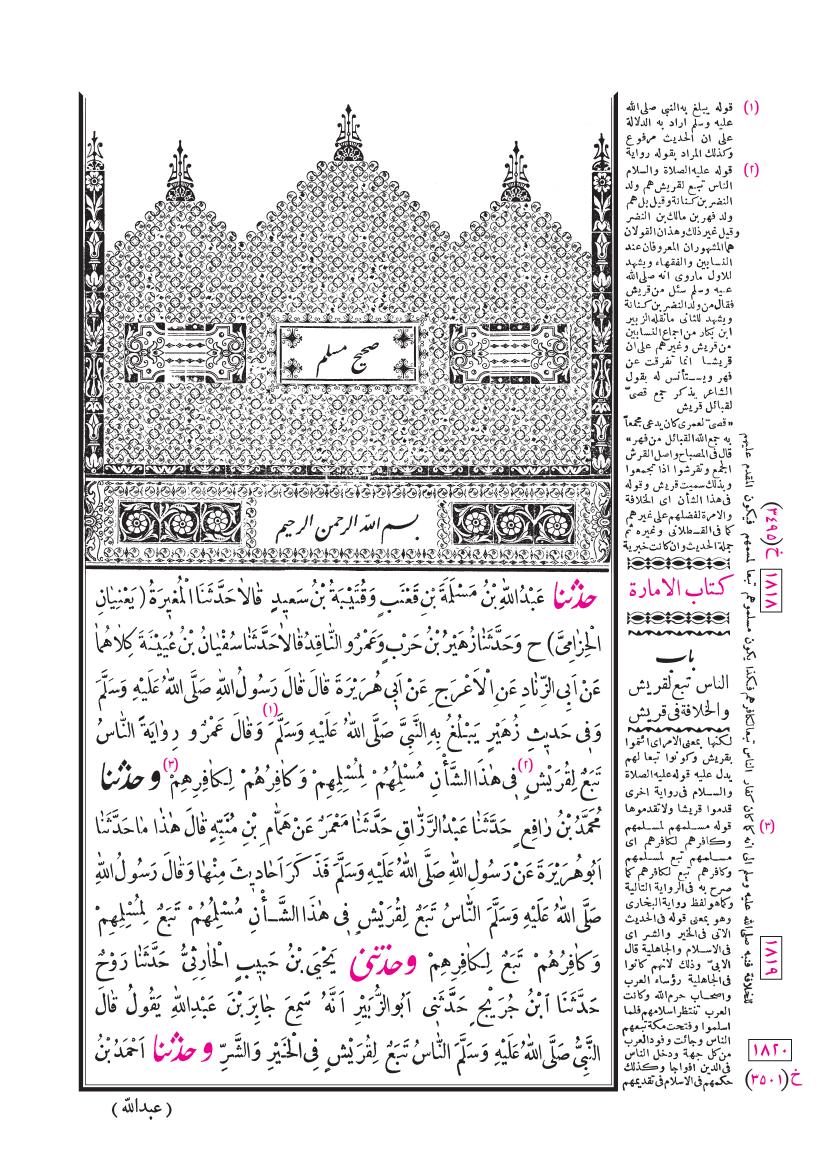 صحيح مسلم
بسم الله الرحمن الرحيم
حَدَّثَنَا عَبْدُ اللهِ بْنُ مَسْلَمَةَ بْنِ قَعْنَبٍ وَقُتَيْبَةُ بْنُ سَعِيدٍ قَالَا حَدَّثَنَا الْمُغِيرَةُ (يَعْنِيَانِ
الْحِزَامِيَّ) ح وَحَدَّثَنَا زُهَيْرُ بْنُ حَرْبٍ وَعَمْرٌو النَّاقِدُ قَالَا حَدَّثَنَا سُفْيَانُ بْنُ عُيَيْنَةَ كِلَاهُمَا
عَنْ اَبِي الزِّنَادِ عَنِ الْاَعْرَجِ عَنْ اَبِي هُرَيْرَةَ قَالَ قَالَ رَسُولُ اللهِ صَلَّى اللهُ عَلَيْهِ وَسَلَّمَ
وَفِي حَدِيثِ زُهَيْرٍ يَبْلُغُ بِهِ النَّبِيَّ صَلَّى اللهُ عَلَيْهِ وَسَلَّمَ (١) وَقَالَ عَمْرٌو رِوَايَةً النَّاسُ
تَبَعٌ لِقُرَيْشٍ (٢) فِي هٰذَا الشَّأْنِ مُسْلِمُهُمْ لِمُسْلِمِهِمْ وَكَافِرُهُمْ لِكَافِرِهِمْ (٣) وَحَدَّثَنَا
مُحَمَّدُ بْنُ رَافِعٍ حَدَّثَنَا عَبْدُ الرَّزَّاقِ حَدَّثَنَا مَعْمَرٌ عَنْ هَمَّامِ بْنِ مُنَبِّهٍ قَالَ هٰذَا مَا حَدَّثَنَا
اَبُو هُرَيْرَةَ عَنْ رَسُولِ اللهِ صَلَّى اللهُ عَلَيْهِ وَسَلَّمَ فَذَكَرَ اَحَادِيثَ مِنْهَا وَقَالَ رَسُولُ اللهِ
صَلَّى اللهُ عَلَيْهِ وَسَلَّمَ النَّاسُ تَبَعٌ لِقُرَيْشٍ فِي هٰذَا الشَّأْنِ مُسْلِمُهُمْ تَبَعٌ لِمُسْلِمِهِمْ
وَكَافِرُهُمْ تَبَعٌ لِكَافِرِهِمْ وَحَدَّثَنِي يَحْيَى بْنُ حَبِيبٍ الْحَارِثِيُّ حَدَّثَنَا رَوْحٌ
حَدَّثَنَا ابْنُ جُرَيْجٍ حَدَّثَنِي اَبُو الزُّبَيْرِ اَنَّهُ سَمِعَ جَابِرَ بْنَ عَبْدِ اللهِ يَقُولُ قَالَ
النَّبِيُّ صَلَّى اللهُ عَلَيْهِ وَسَلَّمَ النَّاسُ تَبَعٌ لِقُرَيْشٍ فِي الْخَيْرِ وَالشَّرِّ وَحَدَّثَنَا اَحْمَدُ بْنُ
(عبدالله)
(١) قوله يبلغ به النبي صلى الله
عليه وسلم اراد به الدلالة
على ان الحديث مرفوع
وكذلك المراد بقوله رواية
(٢) قوله عليه الصلاة والسلام
الناس تبع لقريش هم ولد
النضر بن كنانة وقيل بل هم
ولد فهر بن مالك بن النضر
وقيل غير ذلك وهذان القولان
هما المشهوران المعروفان عند
النسابين والفقهاء ويشهد
للاول ماروى انه صلى الله
عليه وسلم سئل من قريش
فقال من ولد النضر بن كنانة
ويشهد للثانى مانقله الزبير
ابن بكار من اجماع النسابين
من قريش وغيرهم على ان
قريشا انما تفرقت عن
فهر ويستأنس له بقول
الشاعر يذكر جمع قصىّ
لقبائل قريش
«قصىّ لعمرى كان يدعى مجمعاً
به جمع الله القبائل من فهر»
قال فى المصباح واصل القرش
الجمع وتقرشوا اذا تجمعوا
وبذلك سميت قريش وقوله
فى هذا الشأن اى الخلافة
والامرة لفضلهم على غيرهم
كما فى القسطلانى وغيره ثم
جملة الحديث وان كانت خبرية
كتاب الامارة
باب
الناس تبع لقريش
والخلافة فى قريش
لكنها بمعنى الامر اى ائتموا
بقريش وكونوا تبعا لهم
يدل عليه قوله عليه الصلاة
والسلام فى رواية اخرى
قدموا قريشا ولا تقدموها
(٣) قوله مسلمهم لمسلمهم
وكافرهم لكافرهم اى
مسلمهم تبع لمسلمهم
وكافرهم تبع لكافرهم كما
صرح به فى الرواية التالية
وكما هو لفظ رواية البخارى
وهو بمعنى قوله فى الحديث
الاتى فى الخير والشر اى
فى الاسلام والجاهلية قال
الابىّ وذلك لانهم كانوا
فى الجاهلية رؤساء العرب
واصحاب حرم الله وكانت
العرب تنتظر اسلامهم فلما
اسلموا وفتحت مكة تبعهم
الناس وجائت وفود العرب
من كل جهة ودخل الناس
فى الدين افواجا وكذلك
حكمهم فى الاسلام فى تقديمهم
للخلافة فنبه صلى الله عليه وسلم الى انه كما كان كفار الناس تبعا لكافرهم فكذا يكون مسلموهم تبعا لمسلمهم فيكون المقدم عليهم
خ (٣٤٩٥)
١٨١٨
١٨١٩
١٨٢٠
خ (٣٥٠١)